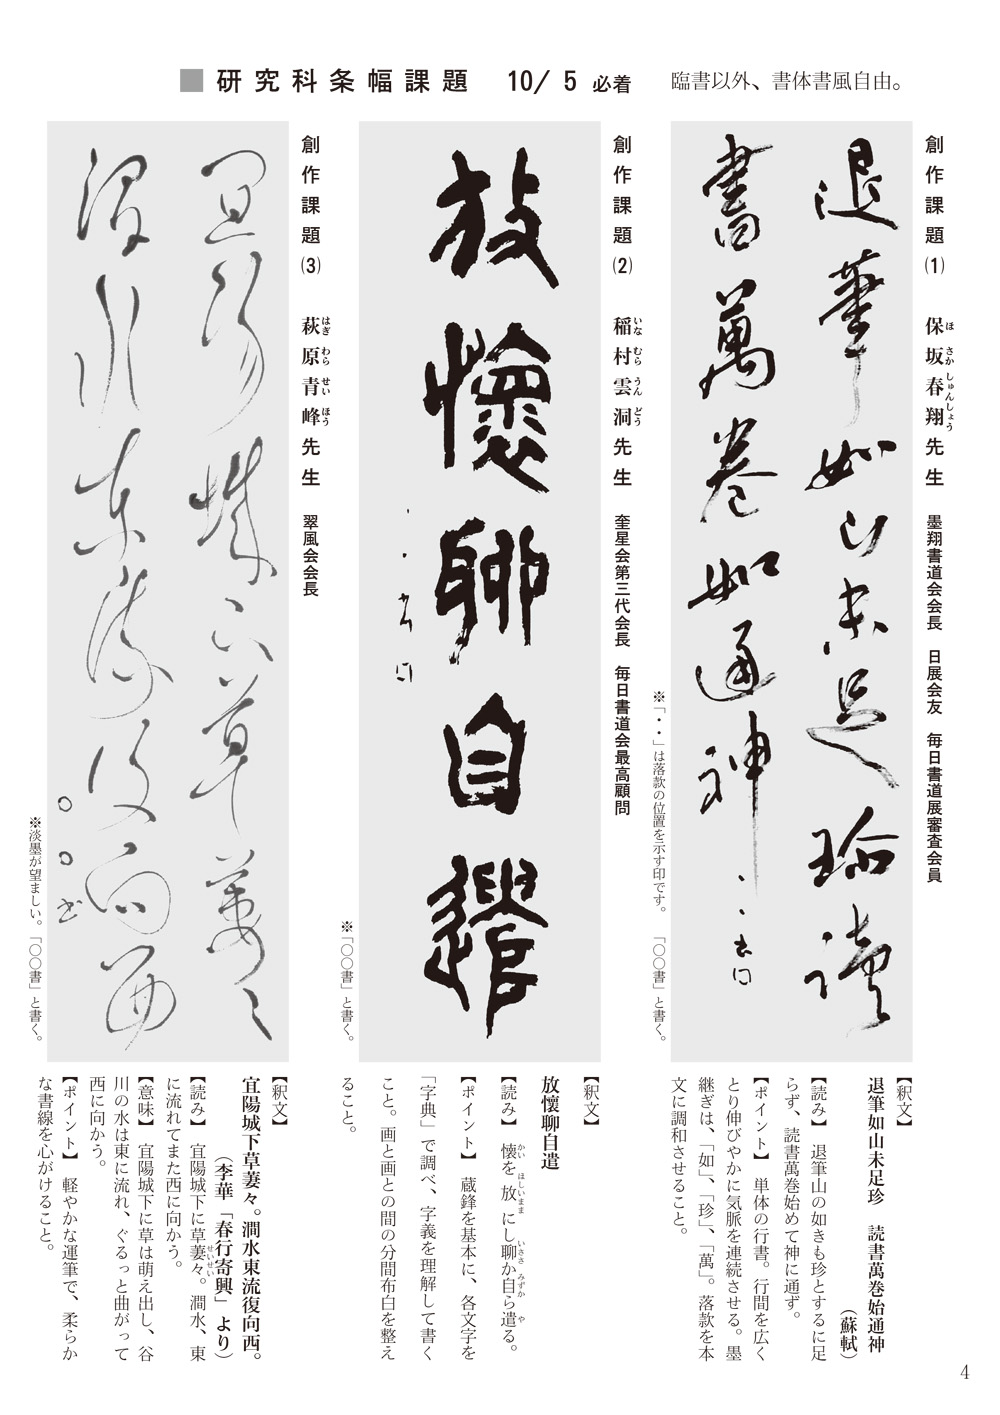 ■研究科条幅課題　10/5必着　臨書以外、書体書風自由。
創作課題(1)　保坂春翔先生　墨翔書道会会長　日展会友　毎日書道展審査会員
ほ　さか　しゅんしょう
退筆如山未足珍読
書萬巻如通神
※「・・」は落款の位置を示す印です。　「〇〇書」と書く。
【釈文】
退筆如山未足珍　読書萬巻始通神
（蘇軾）
【読み】　退筆山の如きも珍とするに足
らず、読書萬巻始めて神に通ず。
【ポイント】　単体の行書。行間を広く
とり伸びやかに気脈を連続させる。墨
継ぎは、「如」、「珍」、「萬」。落款を本
文に調和させること。
創作課題(2)　稲村雲洞先生　奎星会第三代会長　毎日書道会最高顧問
いな　むら　うん　どう
放懐聊自遣
※「〇〇書」と書く。
【釈文】
放懐聊自遣
【読み】　懐を放にし聊か自ら遣る。
かい　ほしいまま　いささ　みずか　や
【ポイント】　蔵鋒を基本に、各文字を
「字典」で調べ、字義を理解して書く
こと。画と画との間の分間布白を整え
ること。
創作課題(3)　萩原青峰先生　翠風会会長
はぎ　わら　せい　ほう
宜陽城下草萋々
澗水東流復向西
〇〇書
※淡墨が望ましい。「〇〇書」と書く。
【釈文】
宜陽城下草萋々。澗水東流復向西。
（李華「春行寄興」より）
【読み】　宜陽城下に草萋々。澗水、東
せいせい
に流れてまた西に向かう。
【意味】　宜陽城下に草は萌え出し、谷
川の水は東に流れ、ぐるっと曲がって
西に向かう。
【ポイント】　軽やかな運筆で、柔らか
な書線を心がけること。
4